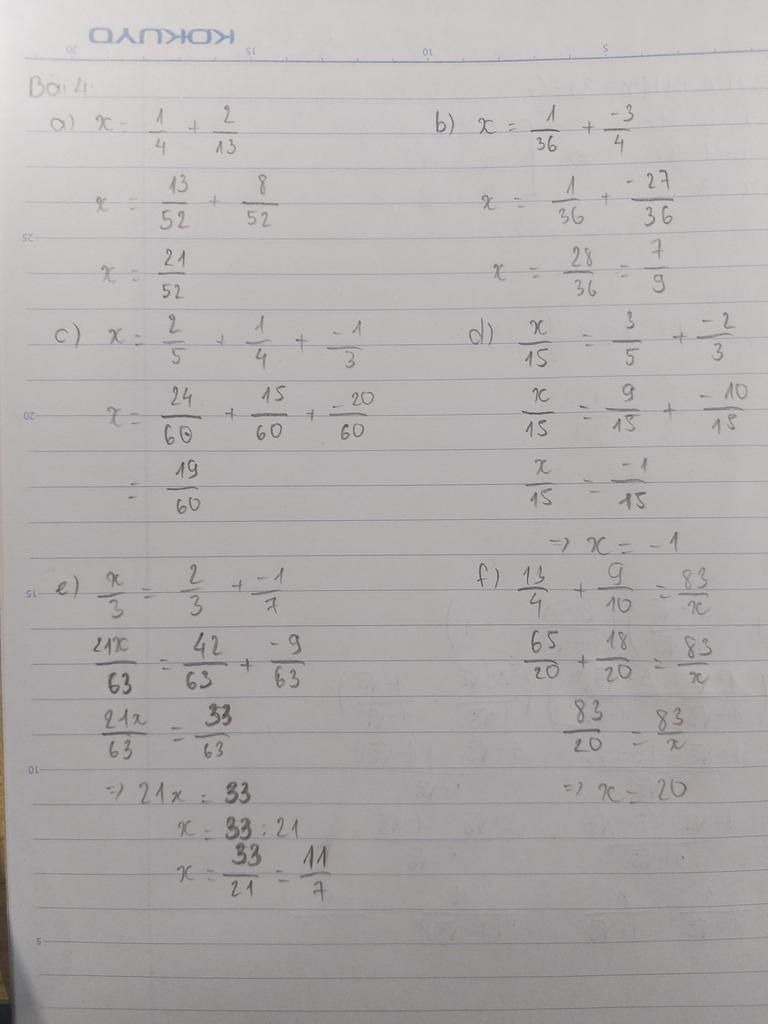 KOKUYO
20 15 10 5
Bài 4.
a) x = 1/4 + 2/13
x = 13/52 + 8/52
x = 21/52
b) x = 1/36 + -3/4
x = 1/36 + -27/36
x = 28/36 = 7/9
c) x = 2/5 + 1/4 + -1/3
x = 24/60 + 15/60 + -20/60
= 19/60
d) x/15 = 3/5 + -2/3
x/15 = 9/15 + -10/15
x/15 = -1/15
=> x = -1
e) x/3 = 2/3 + -1/7
21x/63 = 42/63 + -9/63
21x/63 = 33/63
=> 21x = 33
x = 33 : 21
x = 33/21 = 11/7
f) 13/4 + 9/10 = 83/x
65/20 + 18/20 = 83/x
83/20 = 83/x
=> x = 20
25
20
15
10
5